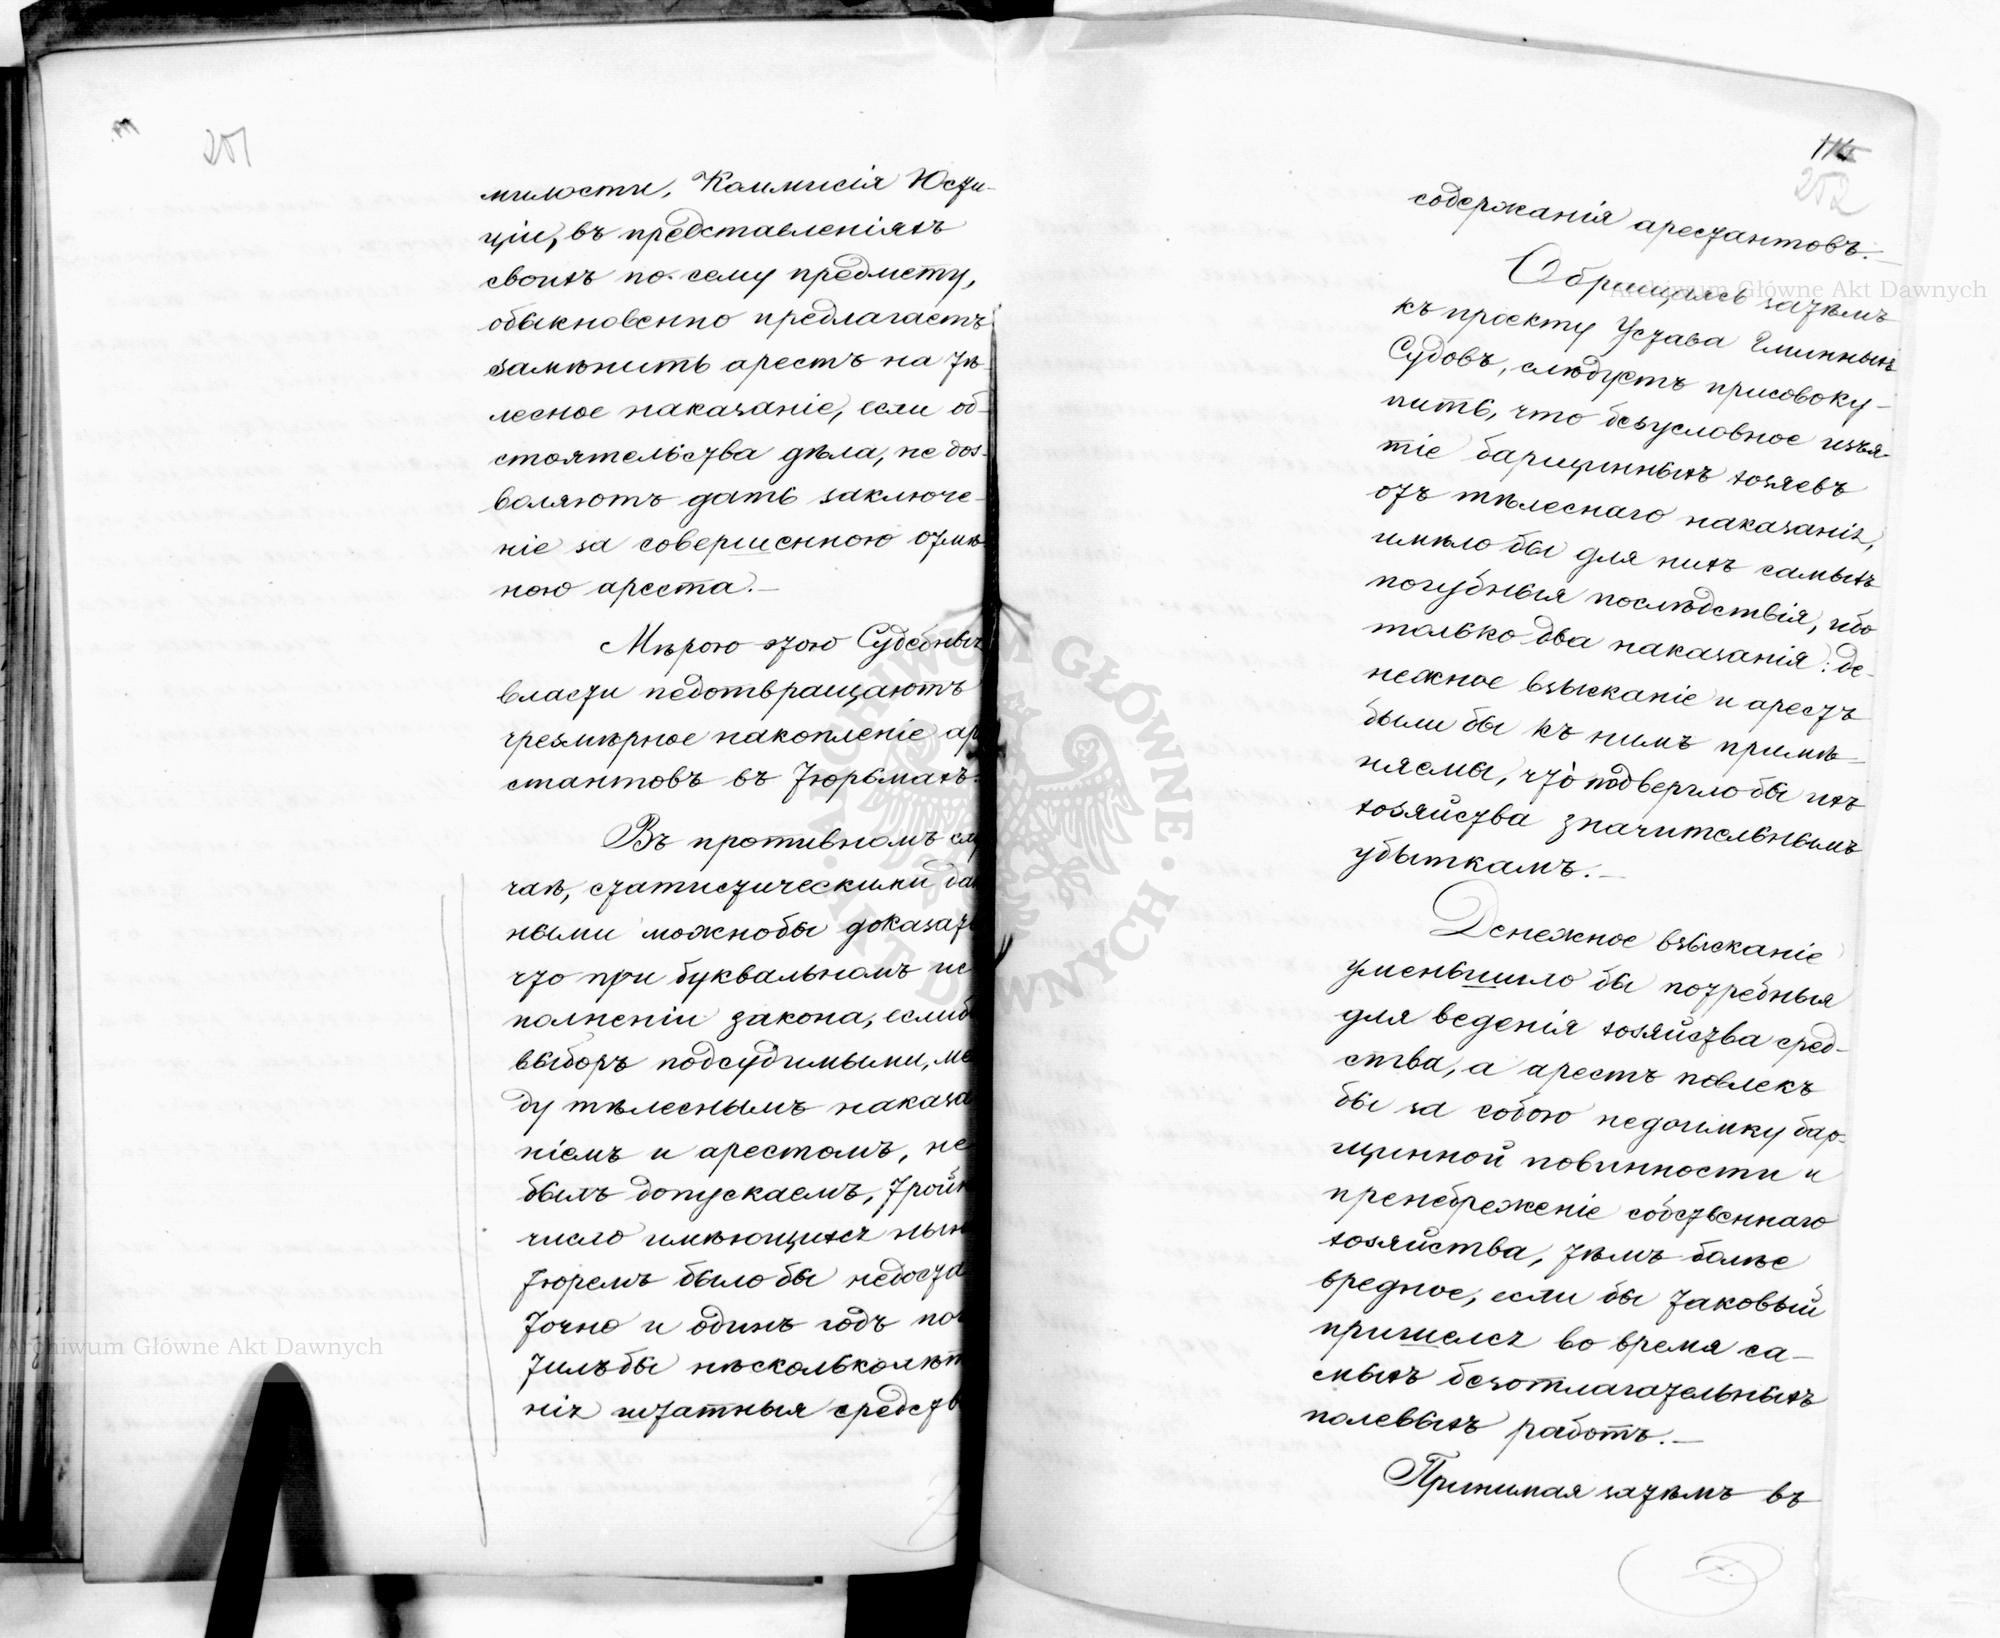 251
милости, Коммисія Юсти-
ціи, въ представленіяхъ
своихъ по сему предмету,
обыкновенно предлагаетъ
замѣнить арестъ на тѣ-
лесное наказаніе, если об-
стоятельства дѣла, не доз-
воляютъ дать заключе-
ніе за совершенною отмѣ-
ною ареста.—
Мѣрою этою Судебныя
власти недотвращаютъ
чрезмѣрное накопленіе ар
стантовъ въ тюрьмахъ.
Въ противномъ слу
чаѣ, статистическими дан
ными можнобы доказать
что при буквальномъ ис
полненіи закона, еслиб
выборъ подсудимыми, ме
ду тѣлеснымъ наказа
ніемъ и арестомъ, не
былъ допускаемъ, тройн
число имѣющихся нын
тюремъ было бы недоста
точно и одинъ годъ пог
тилъ бы нѣскольколѣт
нія штатныя средств
114
252
содержанія арестантовъ.—
Обращаясь затѣмъ
къ проекту Устава Гминныхъ
Судовъ, слѣдуетъ присовоку-
пить, что безусловное изъя-
тіе барщинныхъ хозяевъ
отъ тѣлеснаго наказанія,
имѣло бы для нихъ самыхъ
погубныя послѣдствія, ибо
только два наказанія: де-
нежное взысканіе и арестъ
были бы къ нимъ примѣ-
няемы, что подвергло бы ихъ
хозяйства значительнымъ
убыткамъ.—
Денежное взысканіе
уменьшило бы потребныя
для веденія хозяйства сред-
ства, а арестъ повлекъ
бы за собою недоимку бар-
щинной повинности и
пренебреженіе собственнаго
хозяйства, тѣмъ болѣе
вредное, если бы таковый
пришелся во время са-
мыхъ безотлагательныхъ
полевыхъ работъ.—
Принимая затѣмъ въ
Archiwum Główne Akt Dawnych
Archiwum Główne Akt Dawnych
ARCHIWUM GŁÓWNE AKT DAWNYCH